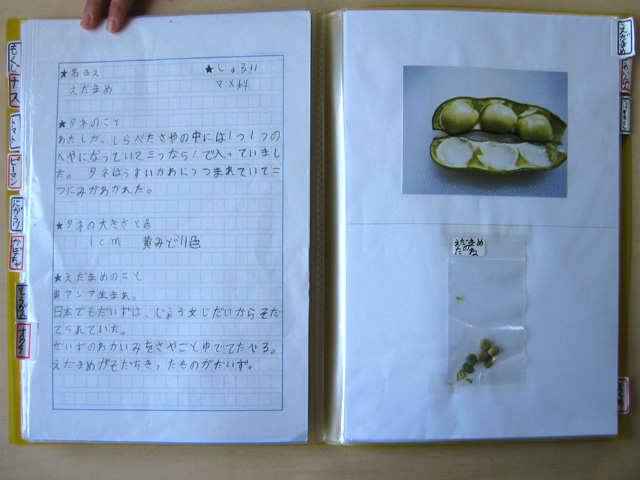 もくじ
ナス
トマト
ピーマン
にがうり
かぼちゃ
オクラ
★名まえ ★しゅるい
えだまめ マメ科
★タネのこと
わたしが、しらべたさやの中には1つ1つの
へやになっていて三つならんで入っていまし
た。 タネはうすいかわにつつまれていて二
つにみがわかれた。
★タネの大きさと色
1cm 黄みどり色
★えだまめのこと
東アジア生まれ。
日本でもだいずは、じょう文じだいからそだ
てられていた。
だいずのわかいみをさやごとゆでてたべる。
えだまめがそだちきったものがだいず。
えだまめ
えだまめ
のたね